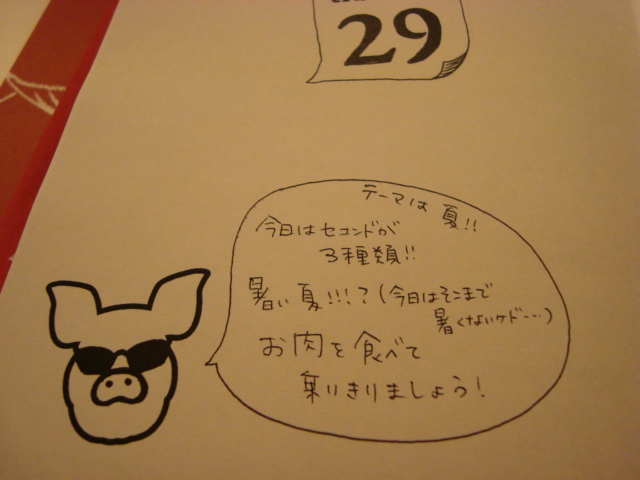 29
テーマは 夏!!
今日はセコンドが
3種類!!
暑い夏!!!?(今日はそこまで
暑くないケド…)
お肉を食べて
乗りきりましょう!